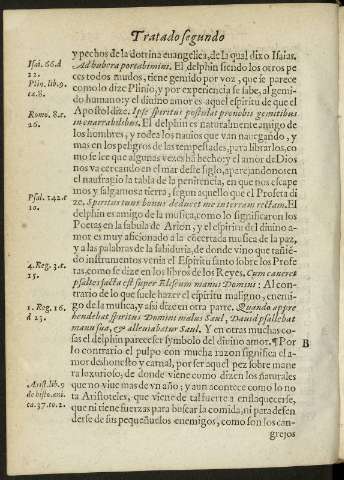 Tratado segundo
y pechos de la dotrina euangelica, de la qual dixo Isaias.
Isai. 66. d
12.
Ad hubera portabimini. El delphin siendo los otros pe
ces todos mudos, tiene gemido por voz, que se parece
Plin. lib. 9.
ca. 8.
como lo dize Plinio, y por experiencia se sabe, al gemi-
do humano: y el diuino amor es aquel espiritu de que el
Rom. 8. e.
26.
Apostol dize. Ipse spiritus postulat pro nobis gemitibus
inenarrabilibus. El delphin es naturalmente amigo de
los hombres, y rodea los nauios que van nauegando, y
mas en los peligros de las tempestades, para librarlos, co
mo se lee que algunas vezes ha hecho: y el amor de Dios
nos va cercando en el mar deste siglo, aparejandonos en
el naufragio la tabla de la penitencia, en que nos escape
mos y salgamos a tierra, segun aquello que el Profeta di
Psal. 142. c
10.
ze. Spiritus tuus bonus deducet me in terram rectam. El
delphin es amigo de la musica, como lo significaron los
Poetas en la fabula de Arion, y el espiritu del diuino a-
mor es muy aficionado a la concertada musica de la paz,
y a las palabras de la sabiduria, de donde vino que tañiẽ-
do instrumentos venia el Espiritu santo sobre los Profe
4. Reg. 3. c.
15.
tas, como se dize en los libros de los Reyes, Cum caneret
psaltes facta est super Eliseum manus Domini: Al con-
trario de lo que suele hazer el espiritu maligno, enemi-
1. Reg. 16.
d 23.
go de la musica, y assi dize en otra parte. Quando appre
hendebat spiritus Domini malus Saul, Dauid psallebat
manu sua, & alleuiabatur Saul. Y en otras muchas co-
sas el delphin parece ser symbolo del diuino amor. ¶ Por
B
lo contrario el pulpo con mucha razon significa el a-
mor deshonesto y carnal, por ser aquel pez sobre mane
ra luxurioso, de donde viene como dizen los naturales
Arist. lib. 9
de histo. ani.
ca. 37. to. 2.
que no viue mas de vn año; y aun acontece como lo no
ta Aristoteles, que viene de tal suerte a enflaquecerse,
que ni tiene fuerzas para buscar la comida, ni para defen
derse de sus pequeñuelos enemigos, como son los can-
grejos